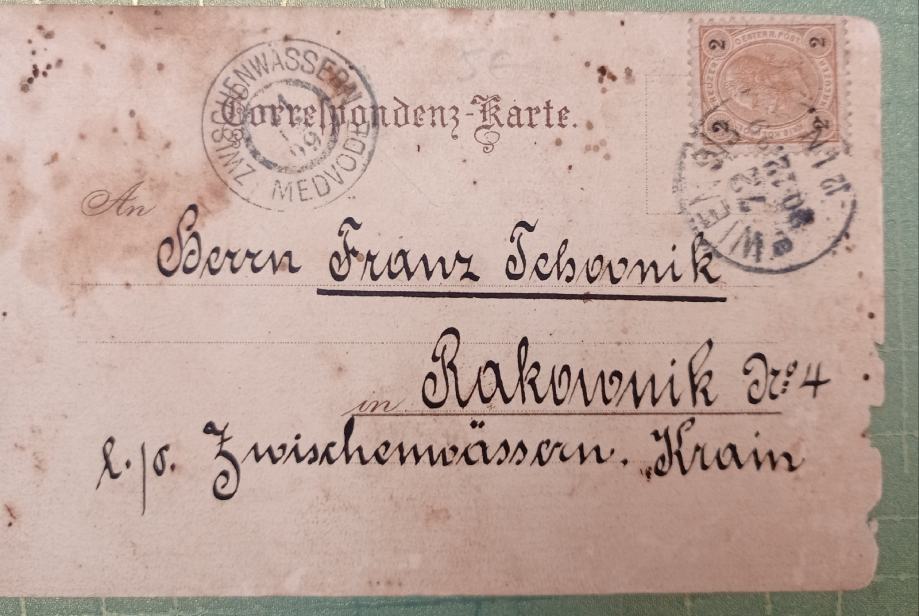 ZWISCHENWÄSSERN
MEDVODE
Correspondenz-Karte.
2 2
KREUZER OESTERR. POST
2 2
WIEN
An
Herrn Franz Tehovnik
in Rakownik No. 4
l. p. Zwischenwässern. Krain